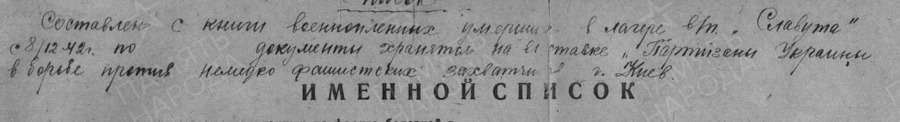 Составлен с книги военнопленных умерших в лагере в/п. „Славута"
с 8/12.42г. по документы хранятся на выставке „Партизаны Украины
в борьбе против немецко фашистских захватчиков г. Киев.
ИМЕННОЙ СПИСОК